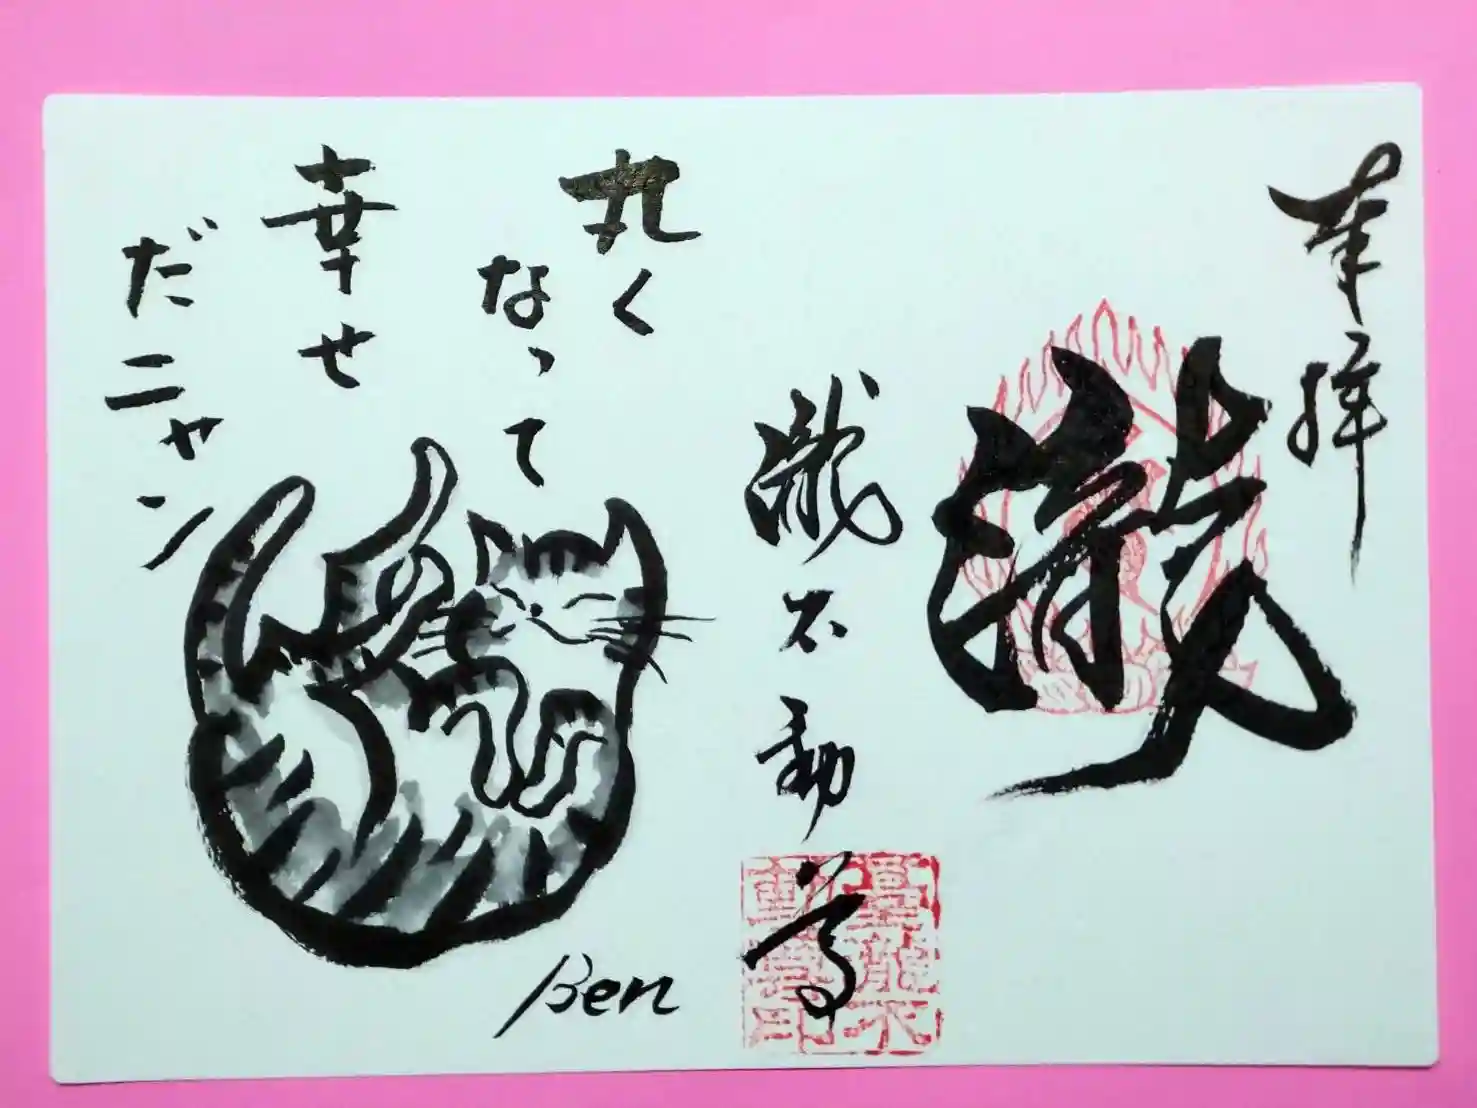 奉拝
瀧
瀧不動尊
丸く
なって
幸せ
だニャン
Ben